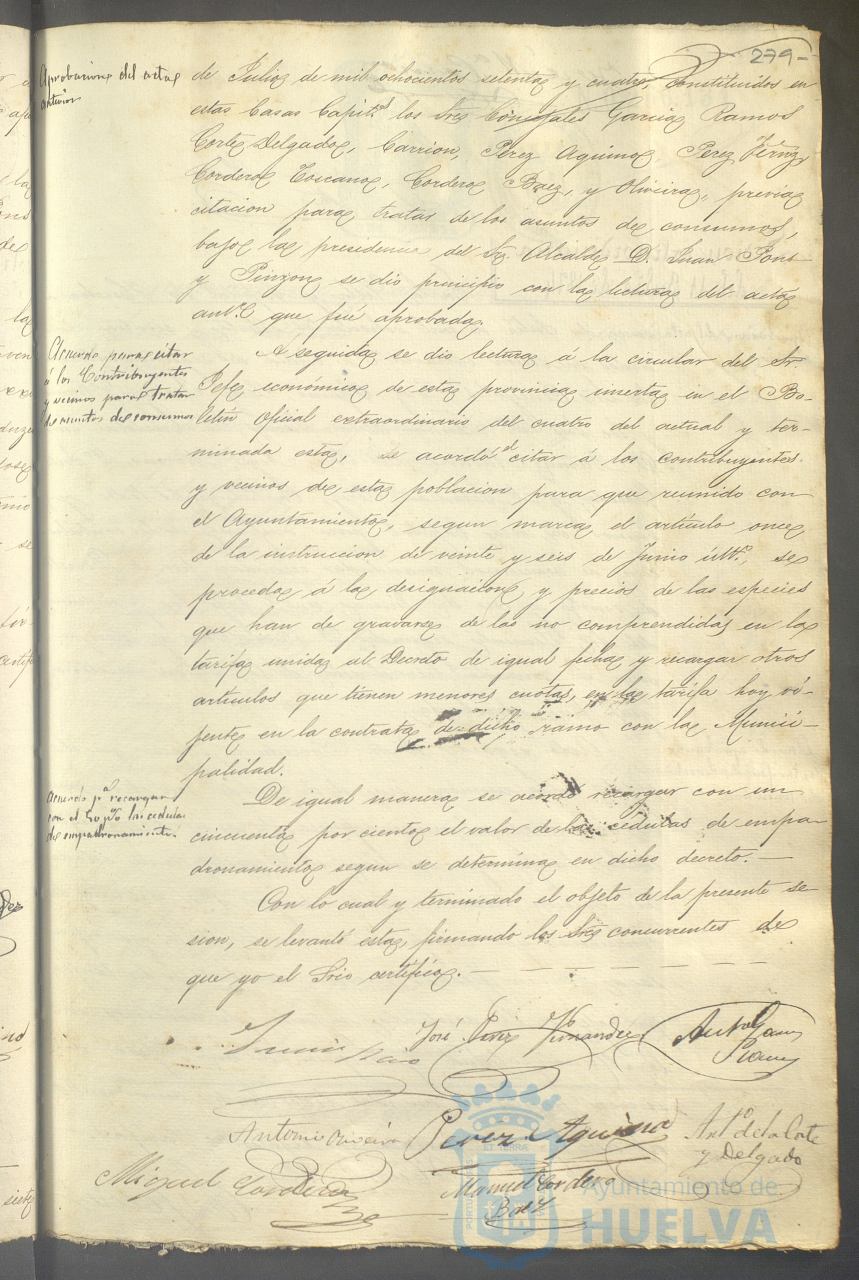 279-
Aprobacion del acta
anterior
de Julio de mil ochocientos setenta y cuatro, constituidos en
estas Casas Capit.s los Sres Concejales Garcia Ramos
Corte Delgado, Carrion, Perez Aquino, Perez Fernz,
Cordero Toscano, Cordero Baez, y Oliveira, previa
citacion para tratar de los asuntos de consumos,
bajo la presidencia del Sr. Alcalde D. Juan Pons
y Pinzon se dio principio con la lectura del acta
ant.e que fué aprobada.
Acuerdo para citar
á los Contribuyentes
y vecinos para tratar
de asuntos de consumos
A seguida se dio lectura á la circular del Sr.
Jefe económico de esta provincia inserta en el Bo-
letin Oficial extraordinario del cuatro del actual y ter-
minada esta, se acordó citar á los contribuyentes
y vecinos de esta poblacion para que reunido con
el Ayuntamiento, segun marca el artículo once
de la instruccion de veinte y seis de Junio últt.o, se
proceda á la designacion y precios de las especies
que han de gravarse de las no comprendidas en la
tarifa unida al Decreto de igual fecha y recargar otros
artículos que tienen menores cuotas, en la tarifa hoy vi-
gente en la contrata de dicho ramo con la Munici-
palidad.
Acuerdo p.a recargar
con el 50 p% las cedulas
de empadronamiento.
De igual manera se acordó recargar con un
cincuenta por ciento el valor de las cedulas de empa-
dronamiento segun se determina en dicho decreto.—
Con lo cual y terminado el objeto de la presente se-
sion, se levantó esta, firmando los Sres concurrentes de
que yo el Srio certifico. — — — — — —
Juan Pons José Perez Fernandez Ant.o Garcia
Ramos
Antonio Oliveira Perez Aquino Ant.o de la Corte
y Delgado
Miguel Cordero Manuel Cordero
Baez
Ayuntamiento de
HUELVA